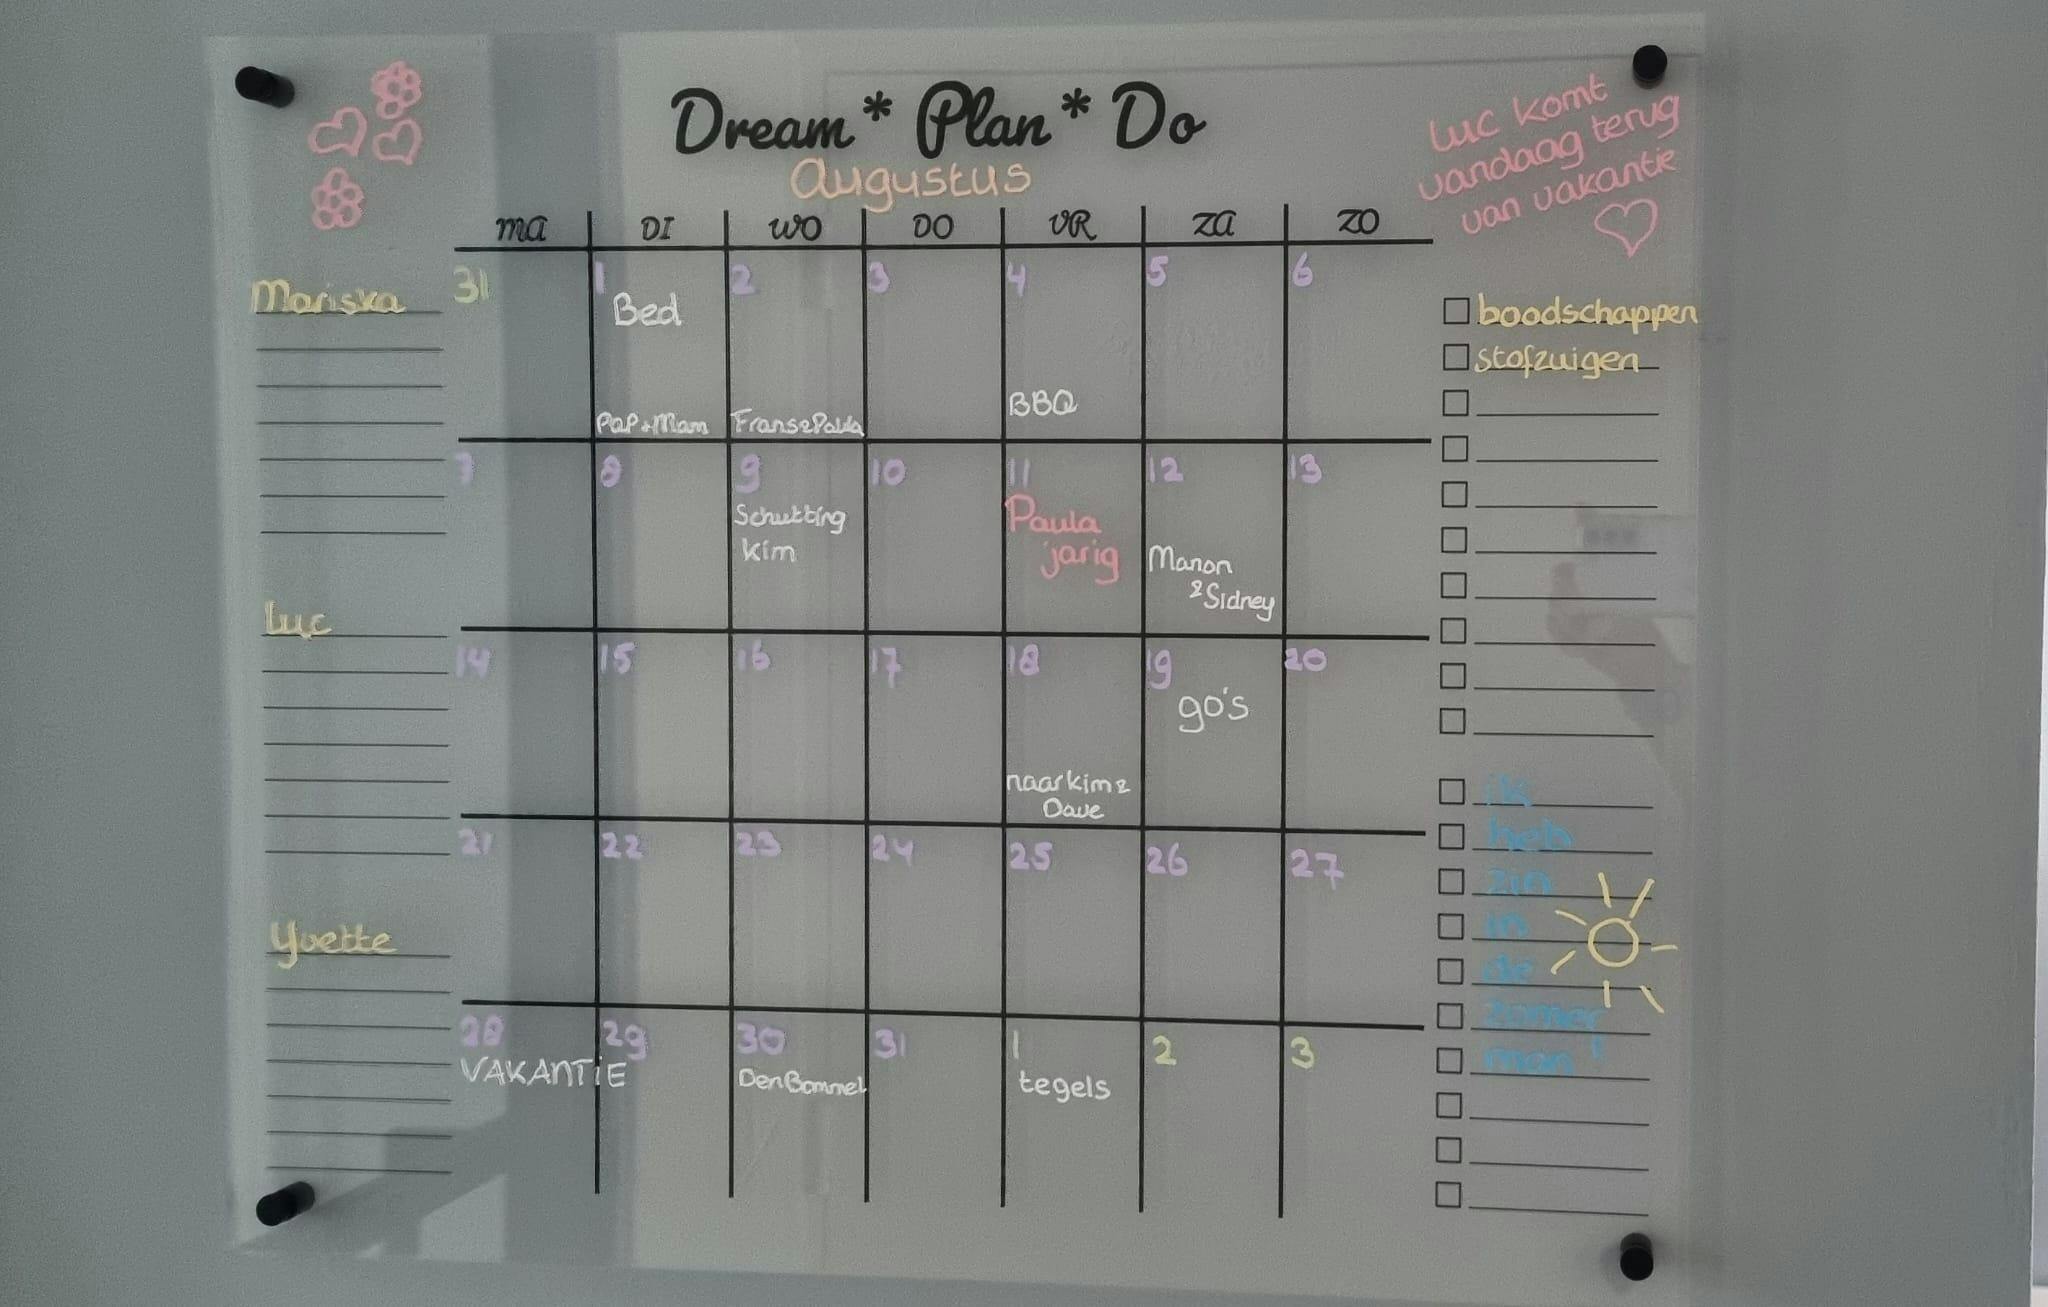 Dream * Plan * Do
Augustus
Luc komt
vandaag terug
van vakantie
MA DI WO DO VR ZA ZO
Mariska
31 1 2 3 4 5 6
Bed
BBQ
Pap+Mam Frans&Paula
7 8 9 10 11 12 13
Schutting
kim
Paula
jarig
Manon
&Sidney
Luc
14 15 16 17 18 19 20
go's
naar kim&
Dave
21 22 23 24 25 26 27
Yvette
28 29 30 31 1 2 3
VAKANTiE
Den Bommel
tegels
boodschappen
stofzuigen
ik
heb
zin
in
de
zomer
man!